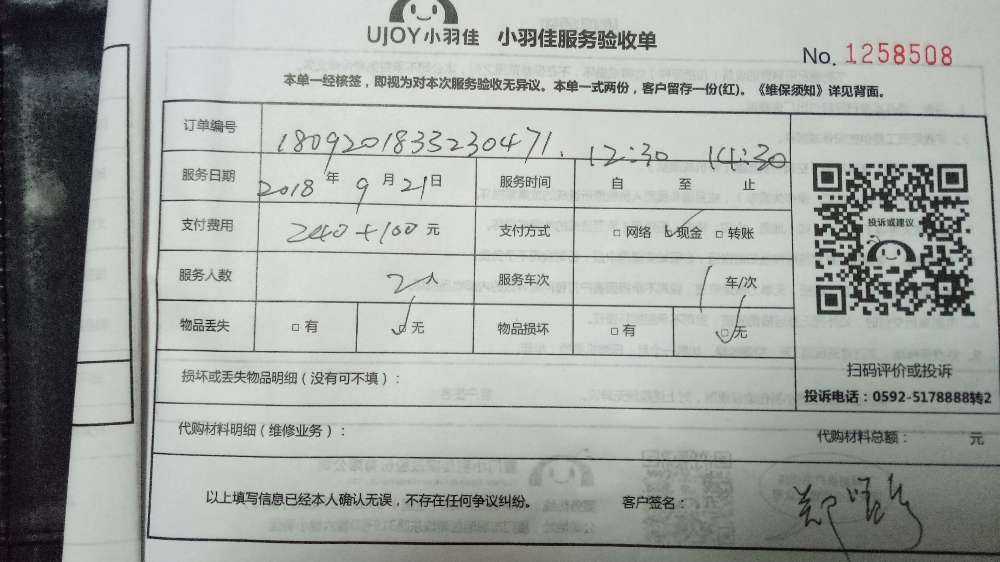 UJOY小羽佳 小羽佳服务验收单
No. 1258508
本单一经核签，即视为对本次服务验收无异议。本单一式两份，客户留存一份(红)。《维保须知》详见背面。
订单编号 180920183323047１.
服务日期 2018 年 9 月 21 日 服务时间 12:30 14:30 自 至 止
支付费用 240+100 元 支付方式 □ 网络 □ 现金 □ 转账
服务人数 2人 服务车次 1 车/次
物品丢失 □ 有 □ 无 物品损坏 □ 有 □ 无
投诉或建议
扫码评价或投诉
投诉电话：0592-5178888转2
损坏或丢失物品明细（没有可不填）：
代购材料明细（维修业务）： 代购材料总额： 元
以上填写信息已经本人确认无误，不存在任何争议纠纷。 客户签名： 郑